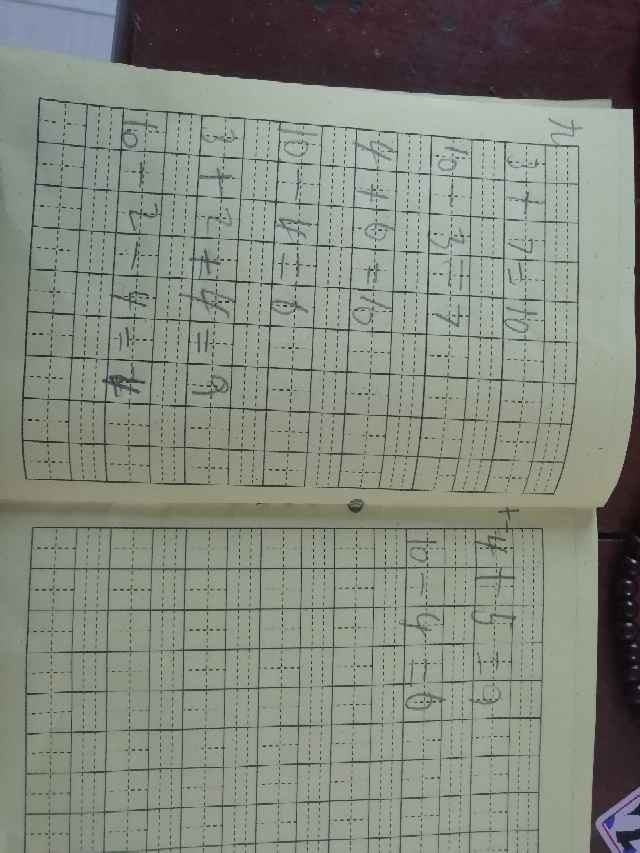 九
3+7=10
10-3=7
4+6=10
10-4=6
3+2+4=9
10-2-4=4
十
4+5=9
10-4=6